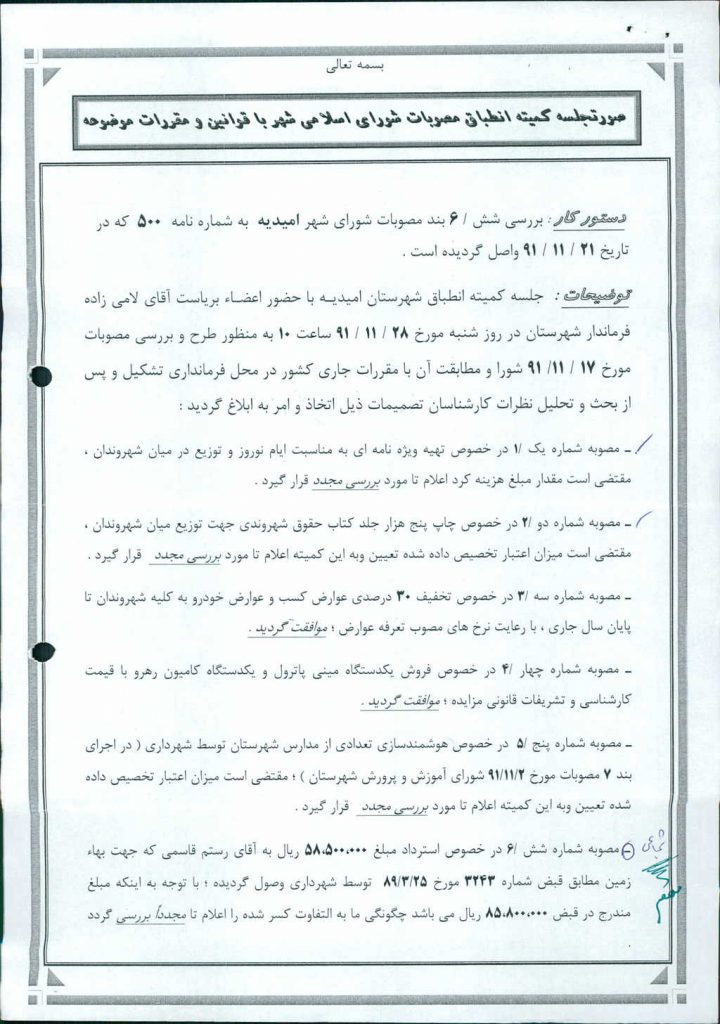 بسمه تعالی
صورتجلسه کمیته انطباق مصوبات شورای اسلامی شهر با قوانین و مقررات موضوعه
دستور کار : بررسی شش / ۶ بند مصوبات شورای شهر امیدیه به شماره نامه ۵۰۰ که در
تاریخ ۲۱ / ۱۱ / ۹۱ واصل گردیده است .
توضیحات : جلسه کمیته انطباق شهرستان امیدیـه با حضور اعضـاء بریاست آقای لامی زاده
فرماندار شهرستان در روز شنبه مورخ ۲۸ / ۱۱ / ۹۱ ساعت ۱۰ به منظور طرح و بررسی مصوبات
مورخ ۱۷ / ۱۱/ ۹۱ شورا و مطابقت آن با مقررات جاری کشور در محل فرمانداری تشکیل و پس
از بحث و تحلیل نظرات کارشناسان تصمیمات ذیل اتخاذ و امر به ابلاغ گردید :
ـ مصوبه شماره یک /۱ در خصوص تهیه ویژه نامه ای به مناسبت ایام نوروز و توزیع در میان شهروندان ،
مقتضی است مقدار مبلغ هزینه کرد اعلام تا مورد بررسی مجدد قرار گیرد .
ـ مصوبه شماره دو /۲ در خصوص چاپ پنج هزار جلد کتاب حقوق شهروندی جهت توزیع میان شهروندان ،
مقتضی است میزان اعتبار تخصیص داده شده تعیین وبه این کمیته اعلام تا مورد بررسی مجدد قرار گیرد .
ـ مصوبه شماره سه /۳ در خصوص تخفیف ۳۰ درصدی عوارض کسب و عوارض خودرو به کلیه شهروندان تا
پایان سال جاری ، با رعایت نرخ های مصوب تعرفه عوارض ؛ موافقت گردید .
ـ مصوبه شماره چهار /۴ در خصوص فروش یکدستگاه مینی پاترول و یکدستگاه کامیون رهرو با قیمت
کارشناسی و تشریفات قانونی مزایده ؛ موافقت گردید .
ـ مصوبه شماره پنج /۵ در خصوص هوشمندسازی تعدادی از مدارس شهرستان توسط شهرداری ( در اجرای
بند ۷ مصوبات مورخ ۹۱/۱۱/۲ شورای آموزش و پرورش شهرستان ) ؛ مقتضی است میزان اعتبار تخصیص داده
شده تعیین وبه این کمیته اعلام تا مورد بررسی مجدد قرار گیرد .
ـ مصوبه شماره شش /۶ در خصوص استرداد مبلغ ۵۸،۵۰۰،۰۰۰ ریال به آقای رستم قاسمی که جهت بهاء
زمین مطابق قبض شماره ۳۲۴۳ مورخ ۸۹/۳/۲۵ توسط شهرداری وصول گردیده ؛ با توجه به اینکه مبلغ
مندرج در قبض ۸۵،۸۰۰،۰۰۰ ریال می باشد چگونگی ما به التفاوت کسر شده را اعلام تا مجدداً بررسی گردد
.